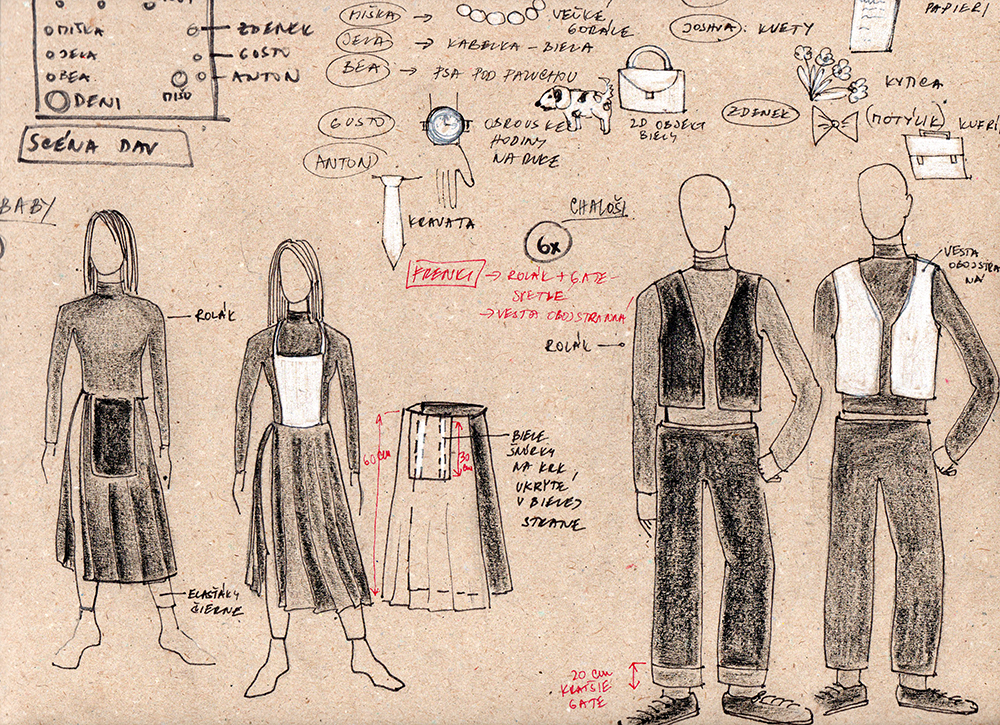 MIŠKA
JELA
BEA.
DENI
MIŠO
ZDENEK
GUSTO
ANTON
SCÉNA DAV
MIŠKA → VEĽKÉ
KORÁLE
JELA → KABELKA - BIELA
BEA → PSA POD PAZUCHOU
GUSTO
OBROVSKÉ
HODINY
NA RUKE
ANTON
KRAVATA
2D OBJEKT
BIELY
JOSHVA: KVETY
PAPIERI
KYTICA
ZDENEK
(MOTÝLIK)
KUFRI
BABY
CHALOŠI
6x
FRENKI → ROLÁK + GATE -
SVETLE
→ VESTA OBOJSTRANNÁ
VESTA
OBOJSTRAN
NÁ
ROLÁK
ROLÁK
60 cm
30
cm
BIELE
ŠNÚRKY
NA KRK
UKRYTÉ
V BIELEJ
STRANE
ELASŤÁKY
ČIERNE
20 cm
KRATŠIE
GATE